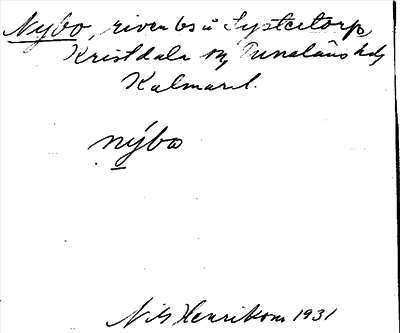 Nybo, riven bs u Systertorp
Kristdala sn, Tunaläns hd,
Kalmar l.
nýbo
Nils Henrikson 1931